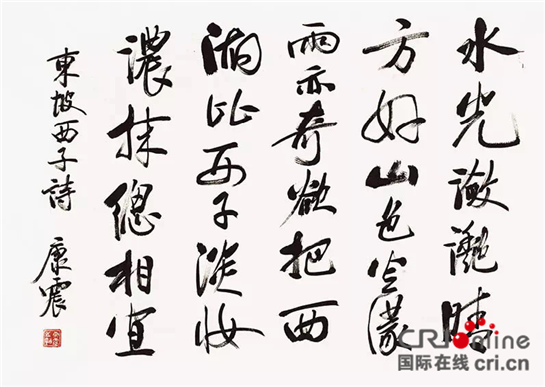 水光瀲灩晴
方好山色空濛
雨亦奇欲把西
湖比西子淡妆
濃抹總相宜
東坡西子詩
康震
CRI online
国际在线 cri.cn